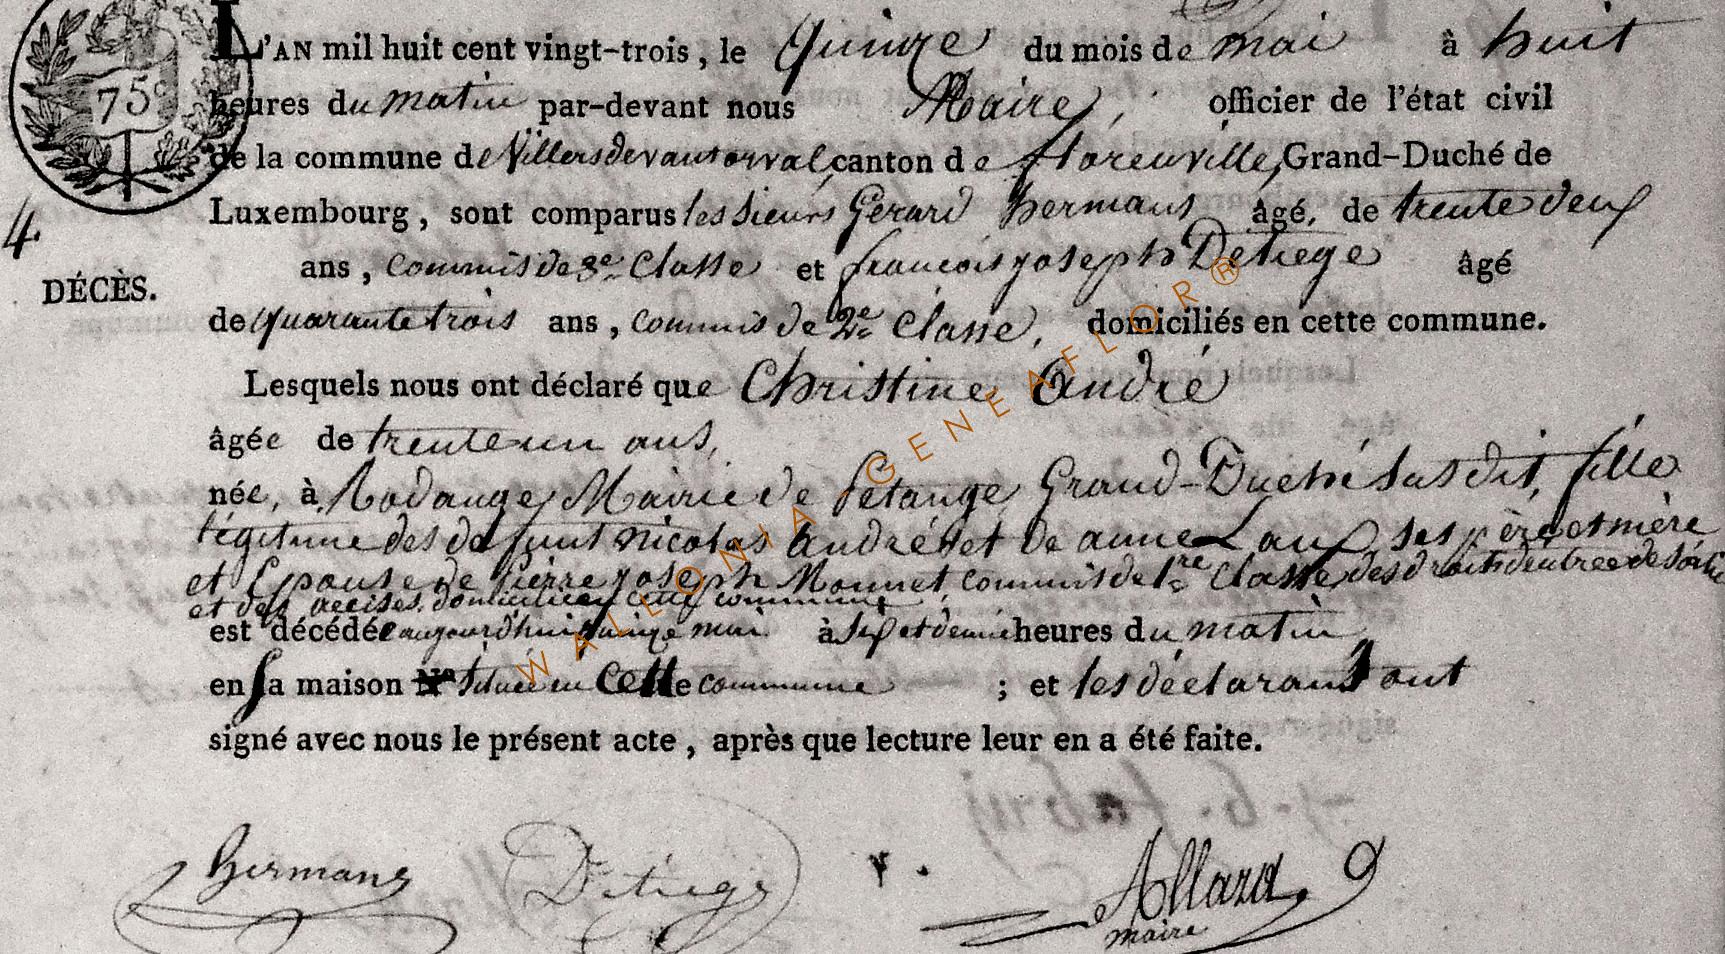 75c
L'AN mil huit cent vingt-trois, le quinze du mois de mai à huit
heures du matin par-devant nous Maire, officier de l'état civil
de la commune de Villersdevantorval, canton de florenville, Grand-Duché de
Luxembourg, sont comparus les sieurs Gerard hermans âgé, de trente deux
4
DÉCÈS.
ans, commis de 3e classe et francois joseph Detiege âgé
de quarante trois ans, commis de 2e classe, domiciliés en cette commune.
Lesquels nous ont déclaré que Christine André
âgée de trente un ans,
née, à Rodange Mairie de Petange Grand-Duché susdit, fille
légitime des defunt nicolas André et de anne Laux ses père et mère
et Epouse de pierre joseph Monnet, commis de 1re classe des droits d'entree de sortie
et des accises, domicilié en cette commune
est décédée aujourdhui quinze mai à sept et demie heures du matin
en sa maison située en cette commune ; et les déclarants ont
signé avec nous le présent acte, après que lecture leur en a été faite.
Hermans Detiege Allard
maire
WALLONIA GENEAFLOR®